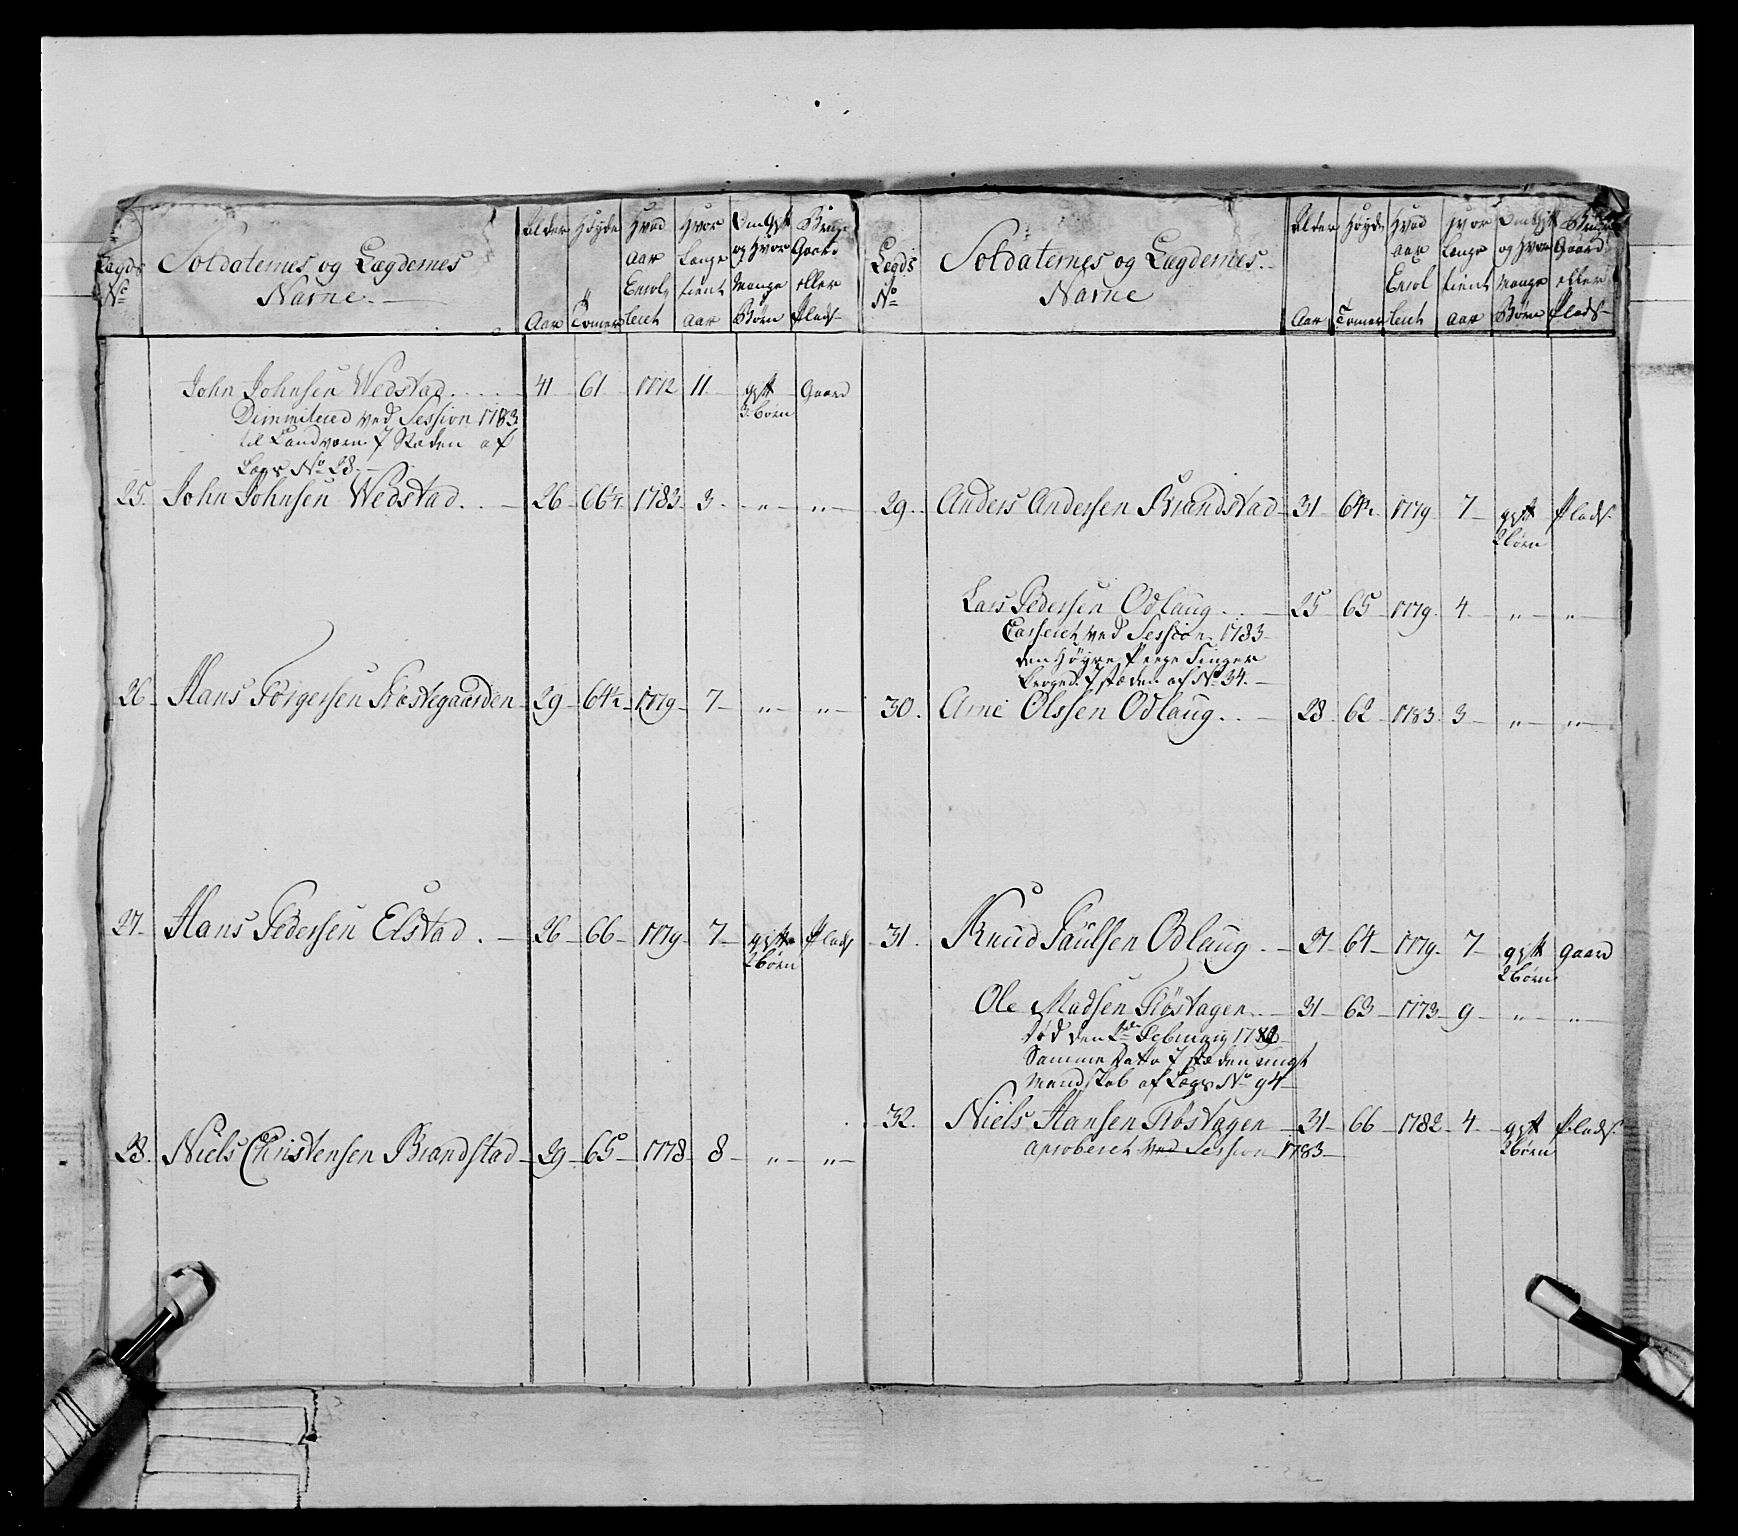 Legds No Soldaternes og Lægdernes Navne Alder Aar Høyde Tomer Hvad aar Enrol leret Hvor Lange tient aar Om Gift og Hvor Mange Børn Bruge Gaard eller Plads
John Johnsen Wedstad 41 61 1772 11 gift 3 børn Gaard
Dimmitered ved Session 1783
til Landvorn I Stæden af
Legs No 28
25. John Johnsen Wedstad 26 66¼ 1783 3 " "
26 Hans Torgersen 29 64½ 1779 7 " "
27 Hans Pedersen Elstad 26 66 1779 7 gift 2 børn Plads
28. Niels Christensen Brandstad 29 65 1778 8 " "
Legds No Soldaternes og Lægdernes Navne Alder Aar Høyde Tomer Hvad aar Enrol leret Hvor Lange tient aar Om Gift og Hvor Mange Børn Bruge Gaard eller Plads
29. Anders Andersen Brandstad 31 64½ 1779 7 gift 2 børn Plads
Lars Pedersen Odlaug 25 65 1779 4 " "
Casseret ved Session 1783
den Høyre Pege Finger
I stæden af No 34.
30. Arne Olssen Odlaug 28 62 1783 3 " "
31. Knud Paulsen Odlaug 27 64 1779 7 gift 2 børn gaard
Ole Madsen Fløstagen 31 63 1773 9 " "
Død den Februarij
Samme Dato I stæden ungt
Mandskab af Legs No 94
32. Niels Hansen Fløstagen 31 66 1782 4 gift 2 børn Plads
aproberet ved Session 1783